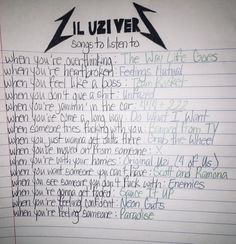 LIL UZI VERT
songs to listen to
when you're overthinking: The Way Life Goes
when you're heartbroken: Feelings Mutual
when you feel like a boss: Team Rocket
when you don't give a shit: Unfazed
when you're jammin' in the car: 444+222
when you've come a long way: Do What I Want
when someone tries fucking with you: Banned From TV
when you just wanna get outta there: Grab the Wheel
when you've moved on from someone: X
when you're with your homies: Original Uzi (4 of Us)
when you want someone you can't have: Scott and Ramona
when you see someone you don't fuck with: Enemies
when you're gonna get faded: Space it Up
when you're feeling confident: Neon Guts
when you're feeling someone: Paradise